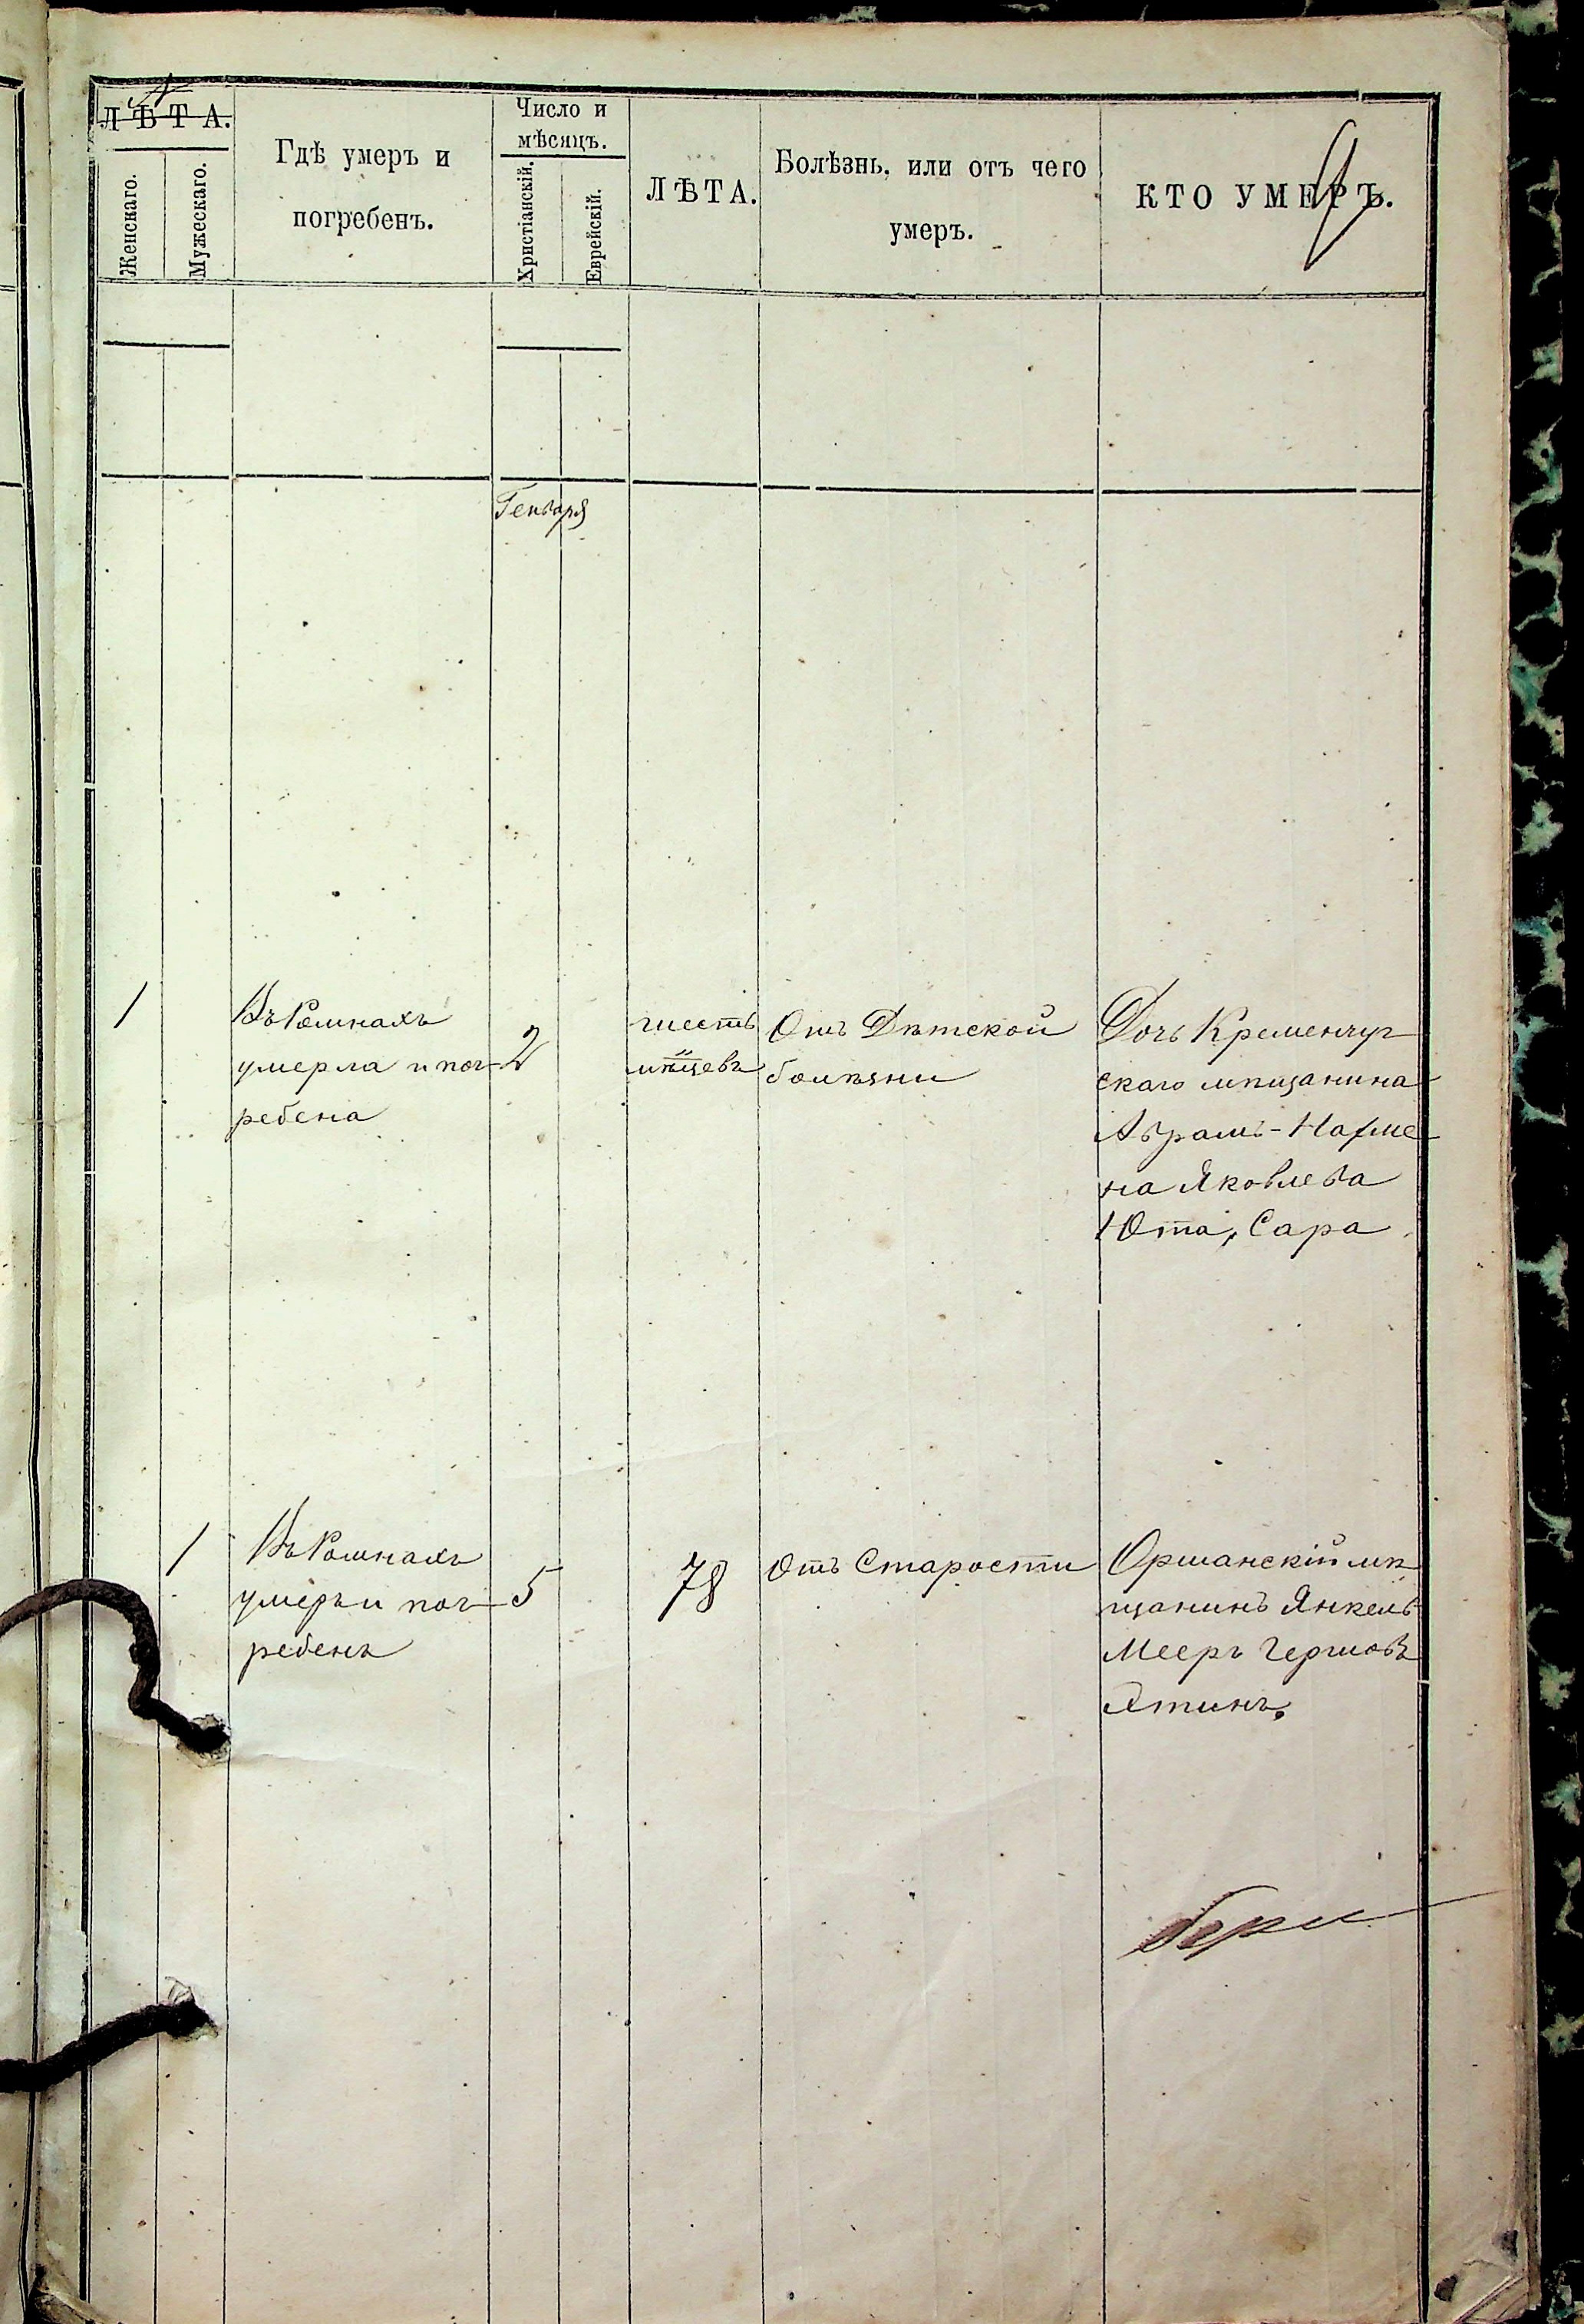 ЛѢТА.
Женскаго.
Мужескаго.
Гдѣ умеръ и
погребенъ.
Число и
мѣсяцъ.
Христіанскій.
Еврейскій.
ЛѢТА.
Болѣзнь, или отъ чего
умеръ.
КТО УМЕРЪ.
Генваря
1
Въ Ромнахъ
умерла и пог-
ребена
2
шесть
мѣцевъ
Отъ Дѣтской
болѣзни
Дочь Кременчуг
скаго мѣщанина
Абрамъ-Нахме
на Яковлева
Юта, Сара
1
Въ Ромнахъ
умеръ и пог-
ребенъ
5
78
Отъ Старости
Оршанскій мѣ
щанинъ Янкель
Мееръ Гершовъ
Ятинъ.